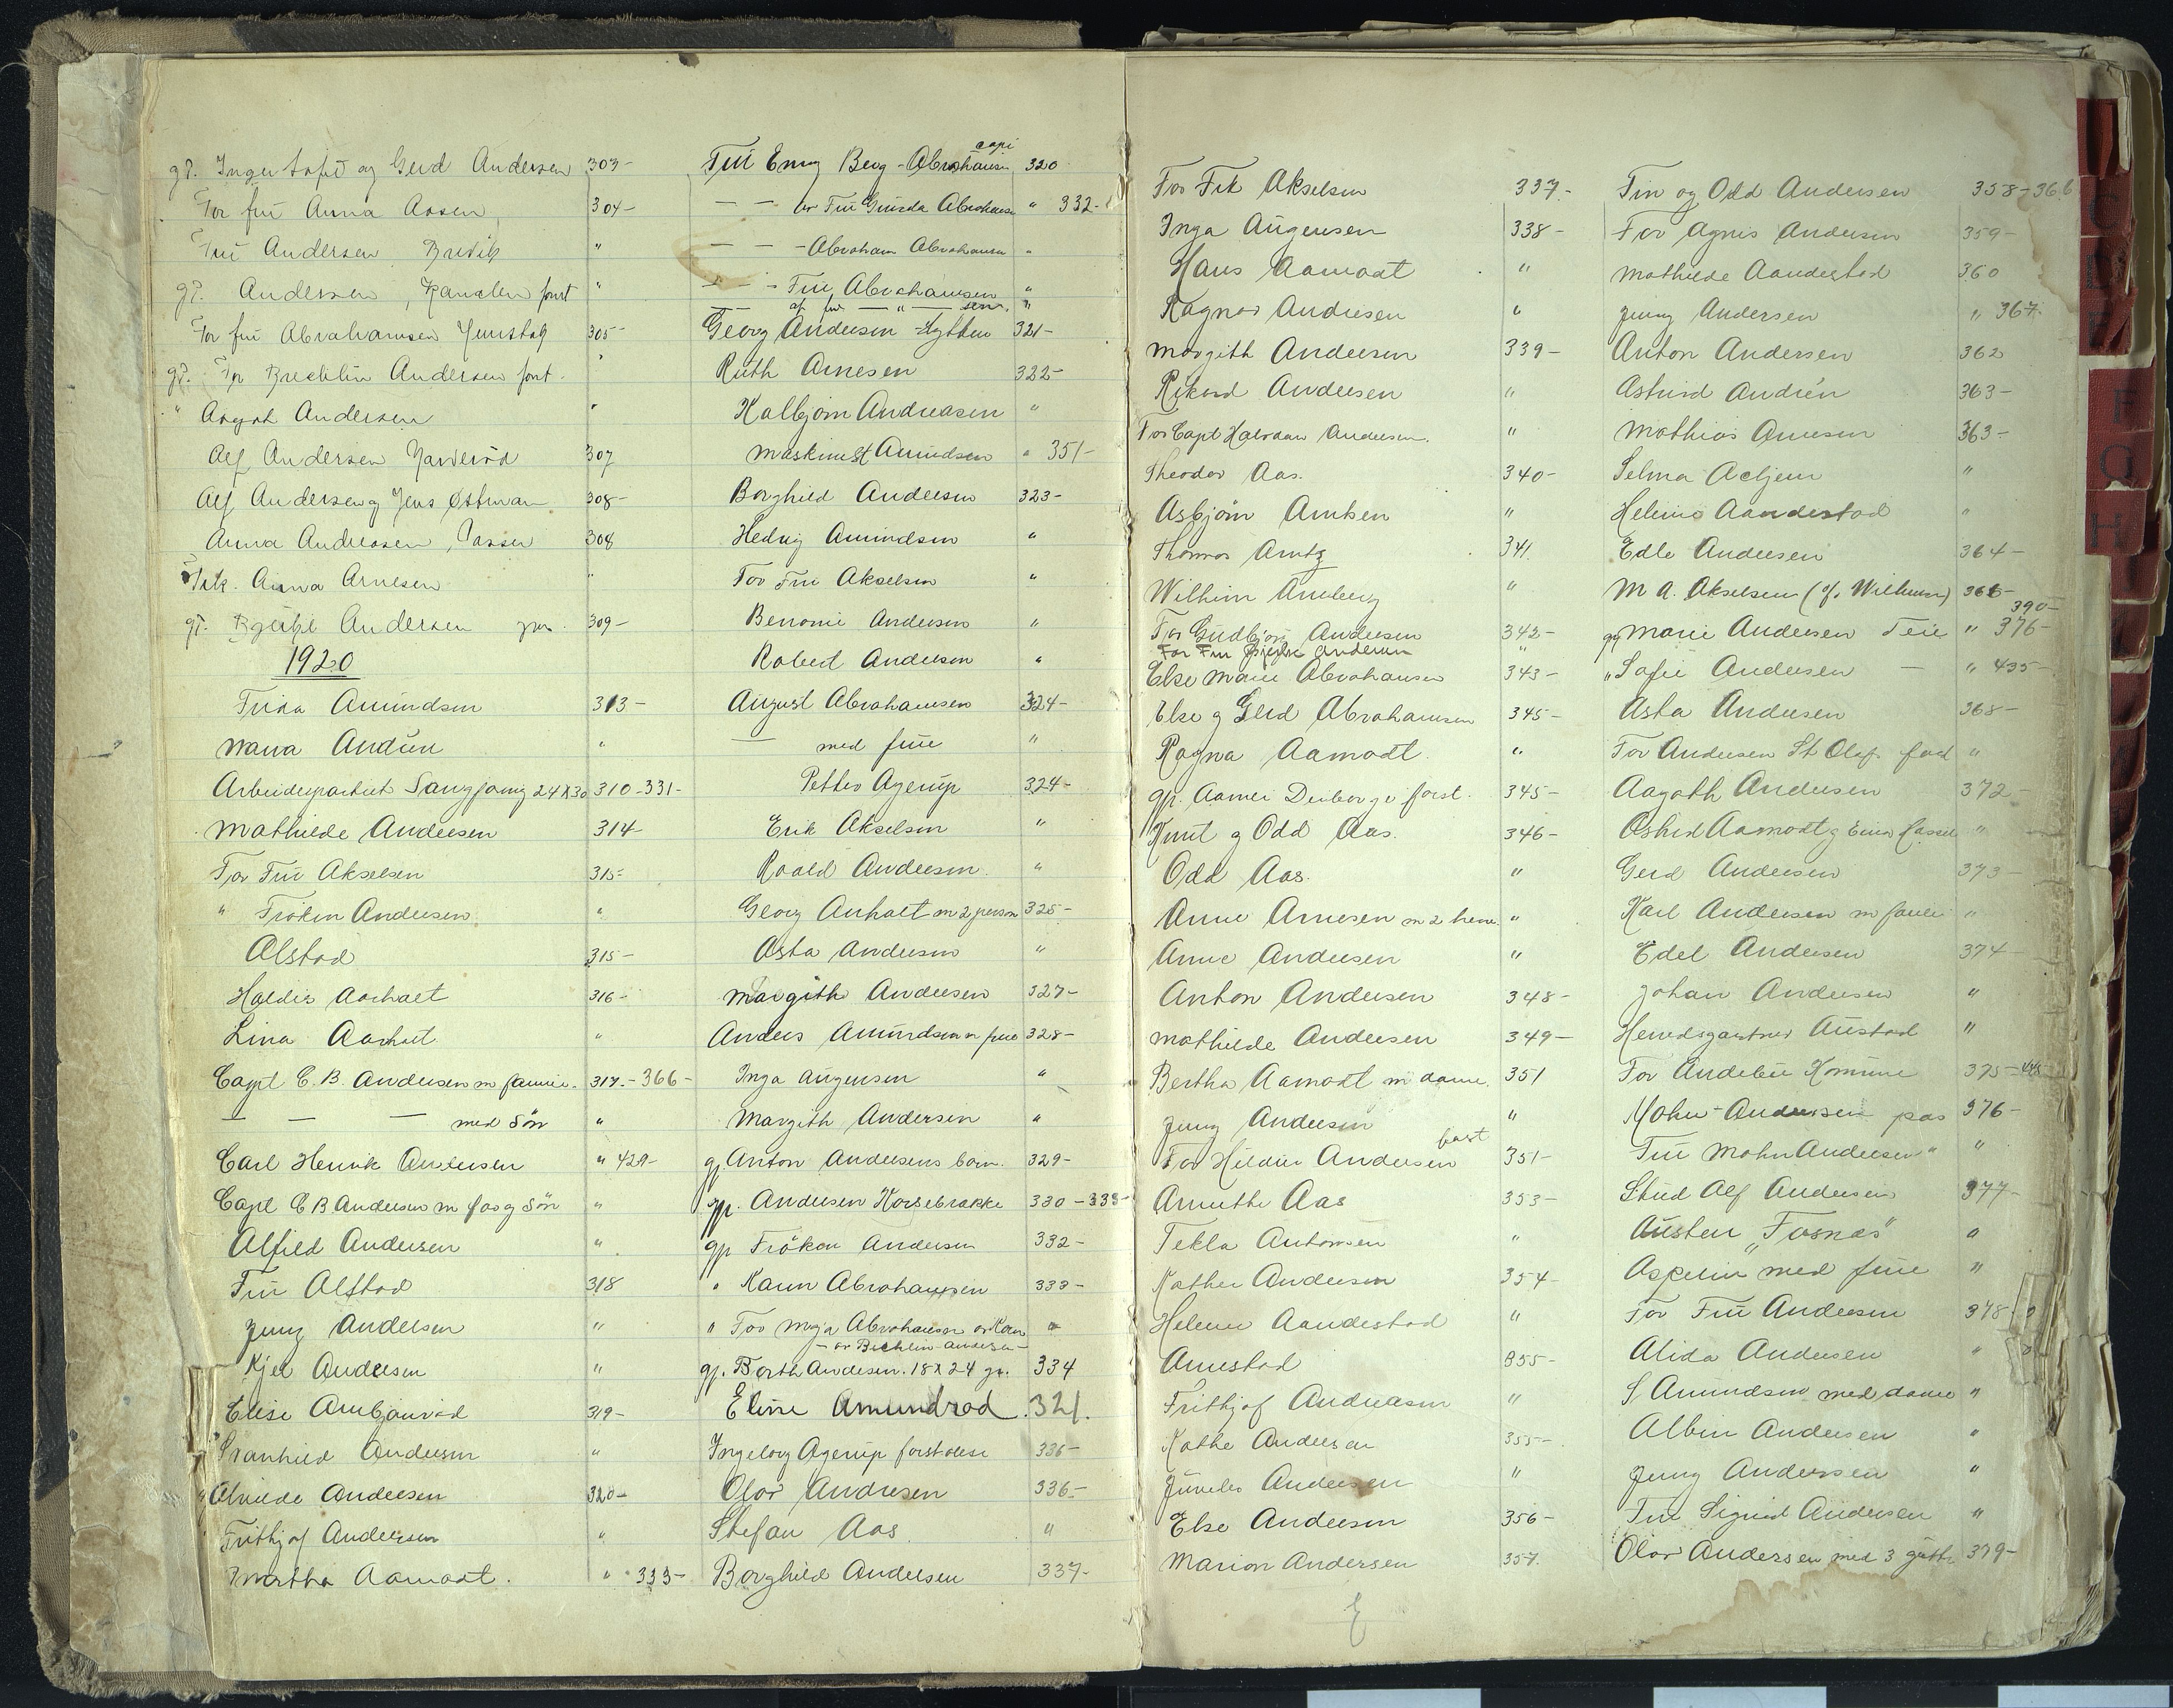 gt. Inger Sofie og Gerd Andersen 303-
For frü Anna Aasen 304-
Frü Andersen Brevik "
gt. Andersen, Kanalen forst "
For frü Abrahamsen 305-
gt. Fr Brechlin Andersen forst. "
" Aagot Andersen "
Alf Andersen 307
Alf Andersen og Jens Østman 308-
Anna Andreasen, 308
Frk. Anna Arnesen "
gt. Andersen 309-
1920
Frida Amündsen 313-
Andün "
Arbeiderpartiet Sangforning 24X30 310-331-
Mathilde Andersen 314-
For Frü Akselsen 315-
" Fröken Andersen "
Alstad 315-
Haldis Aarholt 316-
Lina Aarholt "
Capt C. B. Andersen m familie. 317.-366-
— — — med Sön "
Carl Henrik Andersen " 429-
Capt C B Andersen m far og Sön "
Alfild Andersen "
Frü Alstad 318
Jenny Andersen "
Kjel Andersen "
Elise 319-
Andersen "
Alvilde Andersen 320-
Frithjof Andersen "
Martha Aamodt. " 333-
copi
Frü Emy Berg-Abrahamsen 320
— — av Frü Abrahamsen " 332-
— — - Abraham Abrahamsen "
— — - Frü Abrahamsen "
Georg Andersen 321-
Rüth Arnesen 322-
Kalbjørn Andreasen "
Maskinist Amündsen " 351-
Borghild Andersen 323-
Hedvig Amündsen "
For Frü Akselsen "
Benonie Andersen "
Robert Andersen "
Aügüst Abrahamsen 324-
— med früe "
Petter Agerüp 324-
Erik Akselsen "
Roald Andersen "
Georg Anholt m 2 person 325-
Asta Andersen "
Margith Andersen 327-
Anders Amündsen m früe 328-
Inga Aügensen "
Margith Andersen "
gp. Anton Andersens börn. 329-
gp. Andersen Korsebrække 330-333-
gp Fröken Andersen 332-
" Karin Abrahamsen 333-
" For Maja Abrahamsen og Karin "
- av Brechlin Andersen -
gp. Borth Andersen. 18X24 gr. 334
Eline Amundrød. 321.
Ingeborg Agerüp forstørrelse 336-
Olav Andresen 336-
Stefan Aas "
Borghild Andersen 337-
For Frk Akselsen 337-
Inga Aügensen 338-
Hans Aamodt "
Ragnar Andresen "
Margith Andersen 339-
Rikard Andersen "
For Capt Halvdan Andersen. "
Theodor Aas. 340-
Asbjörn Arntsen "
Thomas Arntz 341.
Wilhelm Amberg "
For Gudbjørg Andersen 342-
For Frü Andersen "
Else Marie Abrahamsen 343-
Else og Gerd Abrahamsen 345-
Ragna Aamodt "
gp. forst. 345-
Knut og Odd Aas. 346-
Odd Aas. "
Anne Arnesen m 2 herre. "
Anne Andersen "
Anton Andersen 348-
Mathilde Andersen 349-
Bertha Aamodt m dame. 351
Jenny Andersen "
forst
For Hildür Andersen 351-
Annethe Aas 353-
Tekla Antonsen "
Kathe Andersen 354-
Helene Aandestad "
Arnestad 355-
Frithjof Andreasen "
Kathe Andersen 355-
Jüvelér Andersen "
Else Andersen 356-
Marion Andersen 357.
Finn og Odd Andersen 358-366
For Agnes Andersen 359-
Mathilde Aandestad 360
Jenny Andersen " 367.
Anton Andersen 362
Astrid Andrén 363-
Mathias Arnesen 363-
Selma "
Helene Aandestad "
Edle Andersen 364-
M A. Akselsen 366-
390-
gp Marie Andersen Teie " 376-
" Sofie Andersen — " 435-
Asta Andersen 368-
For Andersen St Olaf. "
Aagoth Andersen 372-
Astrid Aamodt og Einar "
Gerd Andersen 373-
Karl Andersen m familie "
Edel Andersen 374
Johan Andersen "
Herredsgartner Aüstad "
For Andebü Kommüne 375-
Mohn-Andersen pas 376-
Frü Mohn Andersen " "
Stüd Alf Andersen 377-
Aüsten "Fosnæs" "
Aspelin med früe "
For Frü Andersen 378-
Alida Andersen "
S Amündsen med dame "
Albin Andersen "
Jenny Andersen "
Frü Sigrid Andersen "
Olav Andersen med 3 gütter 379-
C
D
E
F
G
H